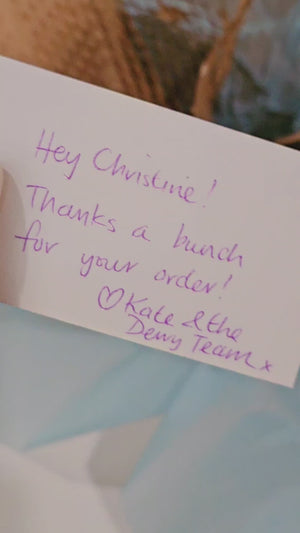 Hey Christine!
Thanks a bunch
for your order!
♡Kate & the
Dewy Team x